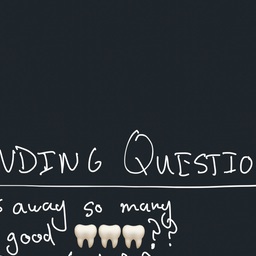 NDING QUESTIO
s away so many
good 🦷🦷🦷??